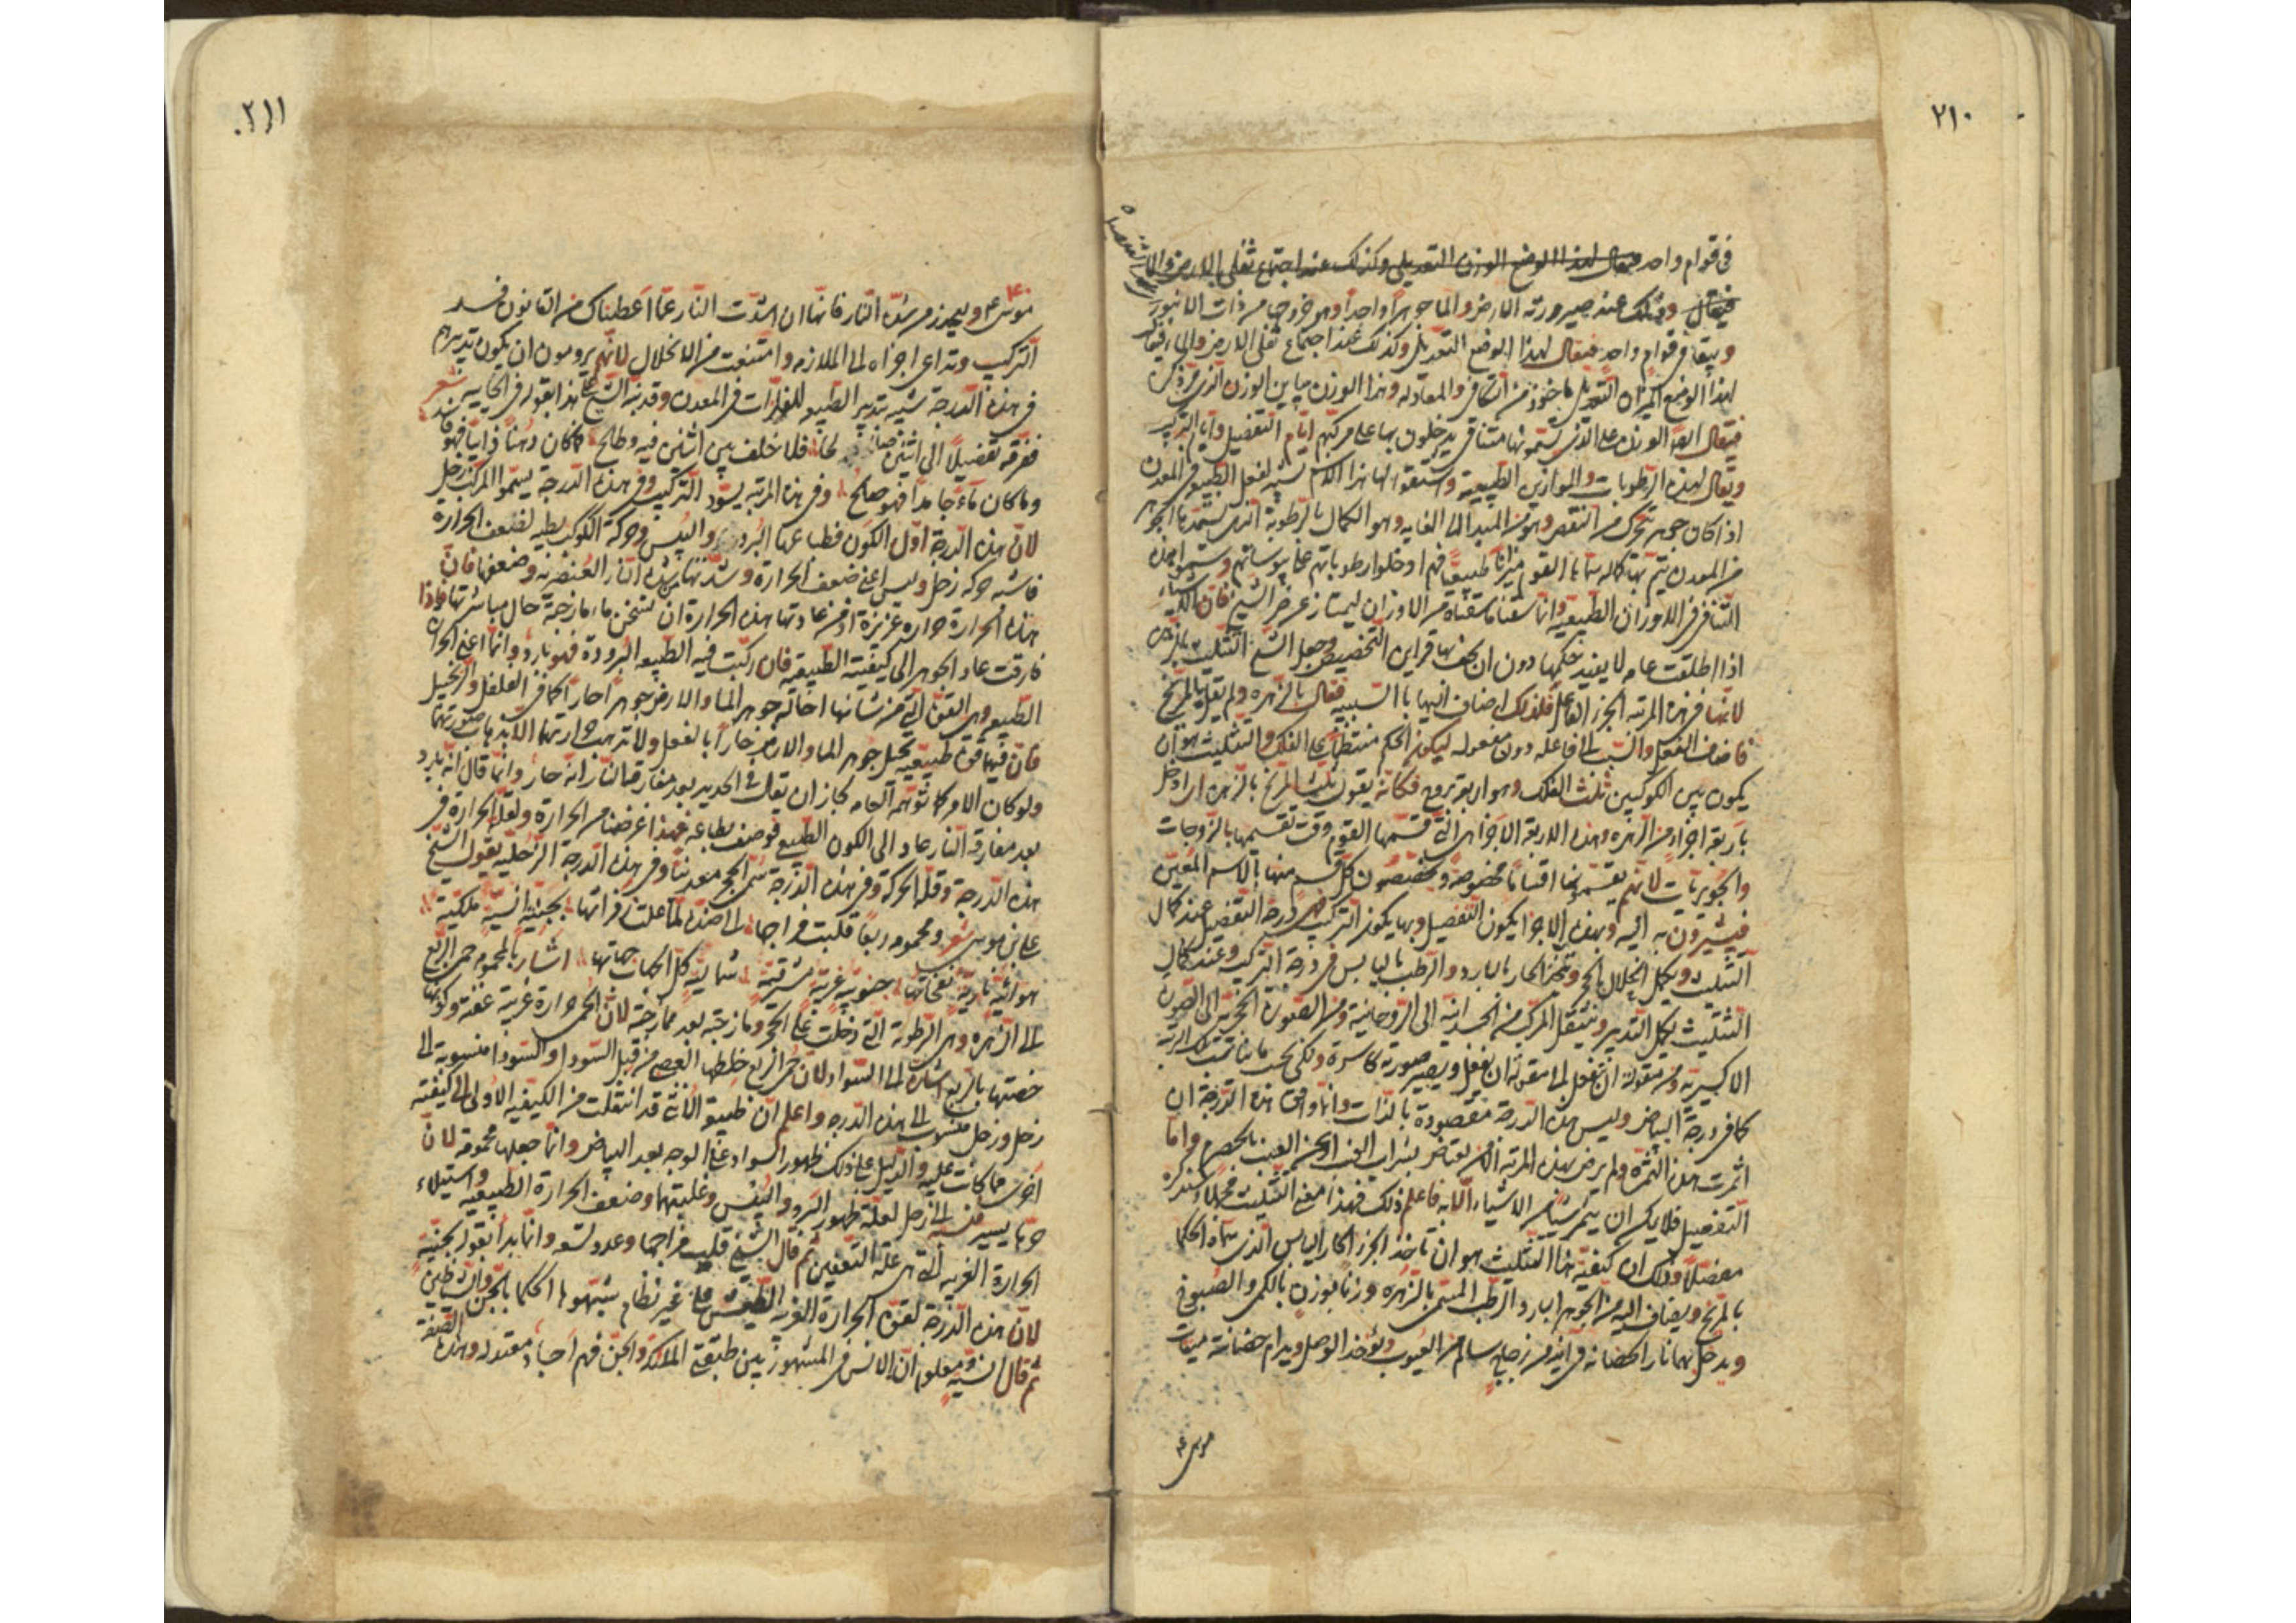 ٢١٠
فى قوام واحد فيقال لهذا الوضع الوزن التعديلى وكذلك عند اجتماع ثفلى الارض والما
فيقال وذلك عند صيرورته الارض والما جوهرا واحدا وهو خروجها من ذات الما نور
ويبقا فى قوام واحد فيقال لهذا الوضع التعديل وكذلك عند اجتماع ثفلى الارض والماء فيقال
لهذا الوضع الميزان التعديل ماخوذ من التكافى والمعادله وهذا الوزن يباين الوزن الذى
فيقال ايضا الوزن على الذى يسمونها مثناقى يدخلون بها على مركبهم ايام التفصيل وايام التركيب
ويقال لهذه الرطوبات والموازين الطبيعية واشتقوا لها هذا الاسم لشبه لفعل الطبيعه فى المعدن
اذا كان جوهر يتحرك من النقص وهو من المبدا الى الغايه وهو الكمال بالرطوبة الذى يستمد بها الجوهر
من المعدن يتم بها كماله سماها القوم ميزانا طبيعيا فهم ادخلوا رطوباتهم على يبوساتهم وسموا هذه
التنافر فى الاوزان الطبيعيه وانما سقنا ما سقناه من الاوزان ليمتاز غرض الشيخ فان
اذا اطلقت عامه لا يفيد حكمها دون ان يحفها قراين التخصيص وجعل الشيخ التثليث بالزهره
لانها فى هذه المرتبه الجزء الفاعل فلذلك اضاف اليها باالسببيه فقال بالزهره ولم يقل بالمريخ
فاضاف الفعل والسبب الى فاعله دون مفعوله ليكون الحكم منتظما على الفلك والتثليث هو ان
يكون بين الكوكبين ثلث الفلك وهو اربعة بروج فكانه يقول تثليث المريخ بالزهره اى ادخل
باربعة اجزاء من الزهره وهذه الاربعة الاجزاء هى التى قسمها القوم وقت تقسيمها بالزوجات
والجويريات لانهم يقسمونها اقساما مخصوصه ويخصصون كل قسم منها بالاسم المعين
فيشيرون به اليه وبهذه الاجزا يكون التفصيل وبها يكون التركيب فهى درجة التفصيل عند كمال
التثليث ويكمل انحلال الحجر ويتحد الحار بالبارد والرطب باليابس فى درجة التركيب وعند كمال
التثليث يكمل التدبير وينتقل المركب من الجسدانيه الى الروحانية ومن الصورة الحجريه الى الصورة
الاكسيريه ومن مقولة ان ينفعل الى مقولة ان يفعل ويصير صورته كاسرة ولكن بحسب ما يناسب تلك المرتبة
كما فى درجة البياض وليس هذه الدرجة مقصودة بالذات وانما وافق هذه الدرجة ان
اثمرت هذه الثمرة ولم يرض بهذه المرتبه الا من يعتاض بشراب الخمر العنب بالحصرم واما
التفصيل فلا يمكن ان يثمر شيئا من الاشياء الا به فاعلم ذلك فهذا معنى التثليث مجملا وسنذكره
مفصلا وذلك ان كيفية هذا التثليث هو ان تاخذ الجزء الحار اليابس الذى سماه الحكما
بالمريخ ويضاف اليه من الجوهر البارد الرطب المسمى بالزهره وزنا بوزن بالكمى والصبو فى
ويدخل بهما نار الحضانه فى اناء من زجاج سالم من العيوب ويؤخذ الوصل ويدام حضانته ميقات
موسى ع
٢١١
موسى ع وليحذر من شدة النار فانها ان اشتدت النار عما اعطيناك من القانون فسد
التركيب وتداعى اجزاه الى الملازمه وامتنعت من الانحلال لانهم يرومون ان يكون تدبيرهم
فى هذه الدرجة شبيه تدبير الطبيعه للفلزات فى المعدن وقد نبه الشيخ على هذا بقوله فى الجاييه شعر
ففرقه تفصيلا الى اثنين فلا خلف بين اثنين فيه وطالح فما كان دهنا ذايبا فهو فاسد
وما كان ماء جامدا فهو صالح وفى هذه المرتبه يسود التركيب وفى هذه الدرجة يسموا المركب زحل
لان هذه الدرجة اول الكون فطباعها البرودة واليبس وحركة الكوكب بطيه لضعف الحرارة
فاشبه حركه زحل وليس اعنى ضعف الحرارة وشدتها شدة النار العنصريه وضعفها فان
هذه الحرارة حراره غريزة اذ من عادتها هذه الحرارة ان تسخن ما مازجته حال مباشرتها فاذا
فارقت عاد الجوهر الى كيفيته الطبيعيه فان ركبت فيه الطبيعه البرودة فهو بارد وانما اعنى الحرارة
الطبيعه وهى القوة التى من شانها احالة جوهر الما والارض جوهرا حارا كما فى الفلفل والزنجبيل
فان فيهما قوة طبيعيه تحيل جوهر الما والارض حارا بالفعل ولا تذهب حرارتهما الا بذهاب صورتهما
ولو كان الامر كما توهم العامه لجاز ان يقال فى الحديد بعد مفارقة النار انه حار وانما قال انه بارد
بعد مفارقة النار عاد الى الكون الطبيعى فوصف بطباعه فهذا غرضنا من الحرارة ولقلة الحرارة فى
هذه الدرجة وقلة الحركة وفى هذه الدرجة سمى الحجر معدنيا وفى هذه الدرجة الزحليه يقول الشيخ
على بن موسى شعر ومحمومه ربعا قلبت مزاجها الى ضده لما علت زفراتها بجنيه انسيه ملكية
هوائية نارية نفحاتها جنوبيه غربية مشرقية شماليه كل الجهات جهاتها اشار بالمحمومه حمى الربع
الى الزهره وهى الرطوبة التى دخلت على الحجر ومازجته بعد ممازجته لان الحمى حرارة غريبة عفنه وكونها
خصتها بالربع اشارة الى السواد لان حمى الربع خلطها العصى من قبل السودا والسودا منسوبه الى
زحل وزحل منسوب الى هذه الدرجه واعلم ان طبيعة الانثى قد انتقلت من الكيفيه الاولى الى كيفيته
اخرى مما كانت عليه والدليل على ذلك ظهور السواد على الوجه بعد البياض وانما جعلها محمومه لان
حرها يسير منسوبه الى زحل لعله ظهور البرد واليبس وغلبتهما وضعف الحرارة الطبيعيه واستيلاء
الحرارة الغريبه التى هى علة التعفين ثم قال الشيخ قلبت مزاجها وعدولته وانما بدا بقوله بجنية
لان هذه الدرجة لقوة الحرارة الغريبه على غير نظام شبهوها الحكما بالجن والشياطين
ثم قال انسيه ومعلوم ان الانس فى المشهور بين طبقتى الملائكة والجن فهم اجساد معتدله وهذه الصفة